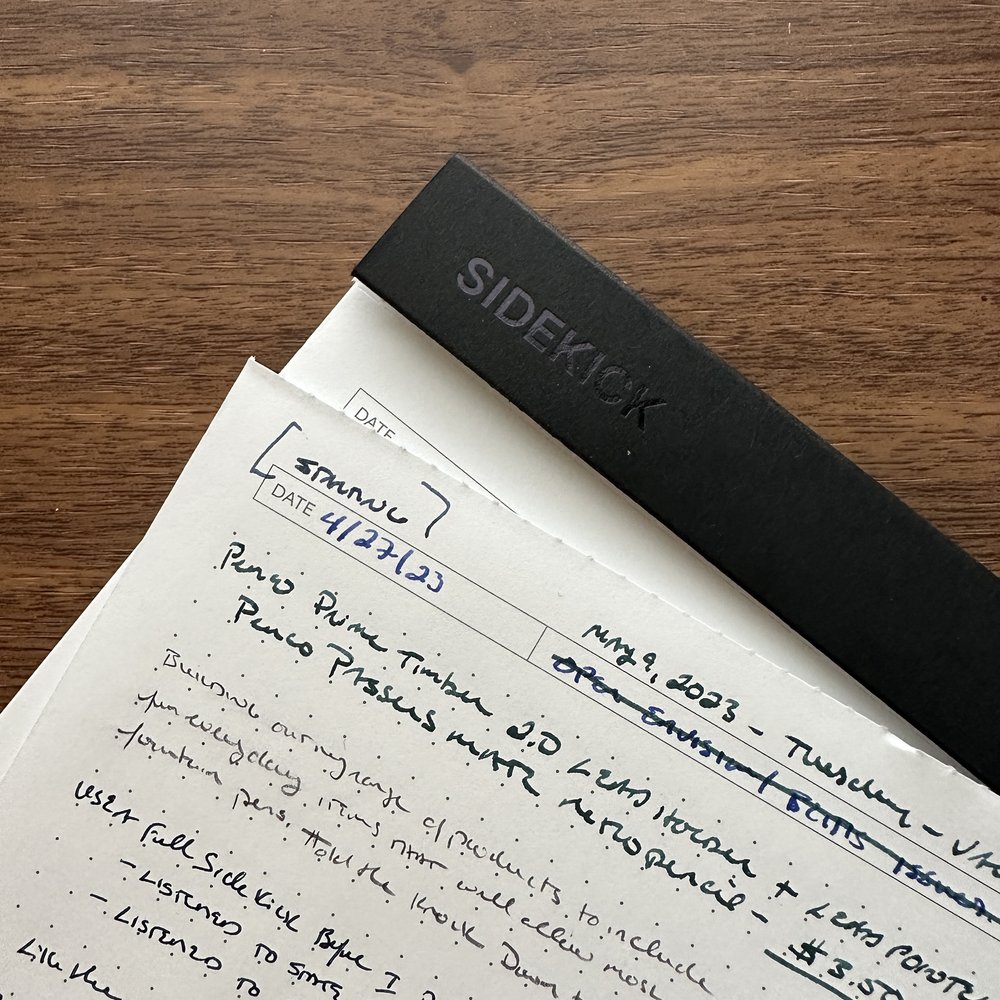 SIDEKICK
DATE
[STARTING]
DATE 4/27/23
MAY 9, 2023 - Tuesday -
Penco Prime Timber 2.0 LEAD Holder + LEAD POINTE
Penco Passers MATE Pencil - $3.50
Building our range of products to include
fun everyday items that will allow most
fountain pens. Hold the knock Down
USER Full Sidekick Before I
- LISTENED TO START
- LISTENED TO
Like the